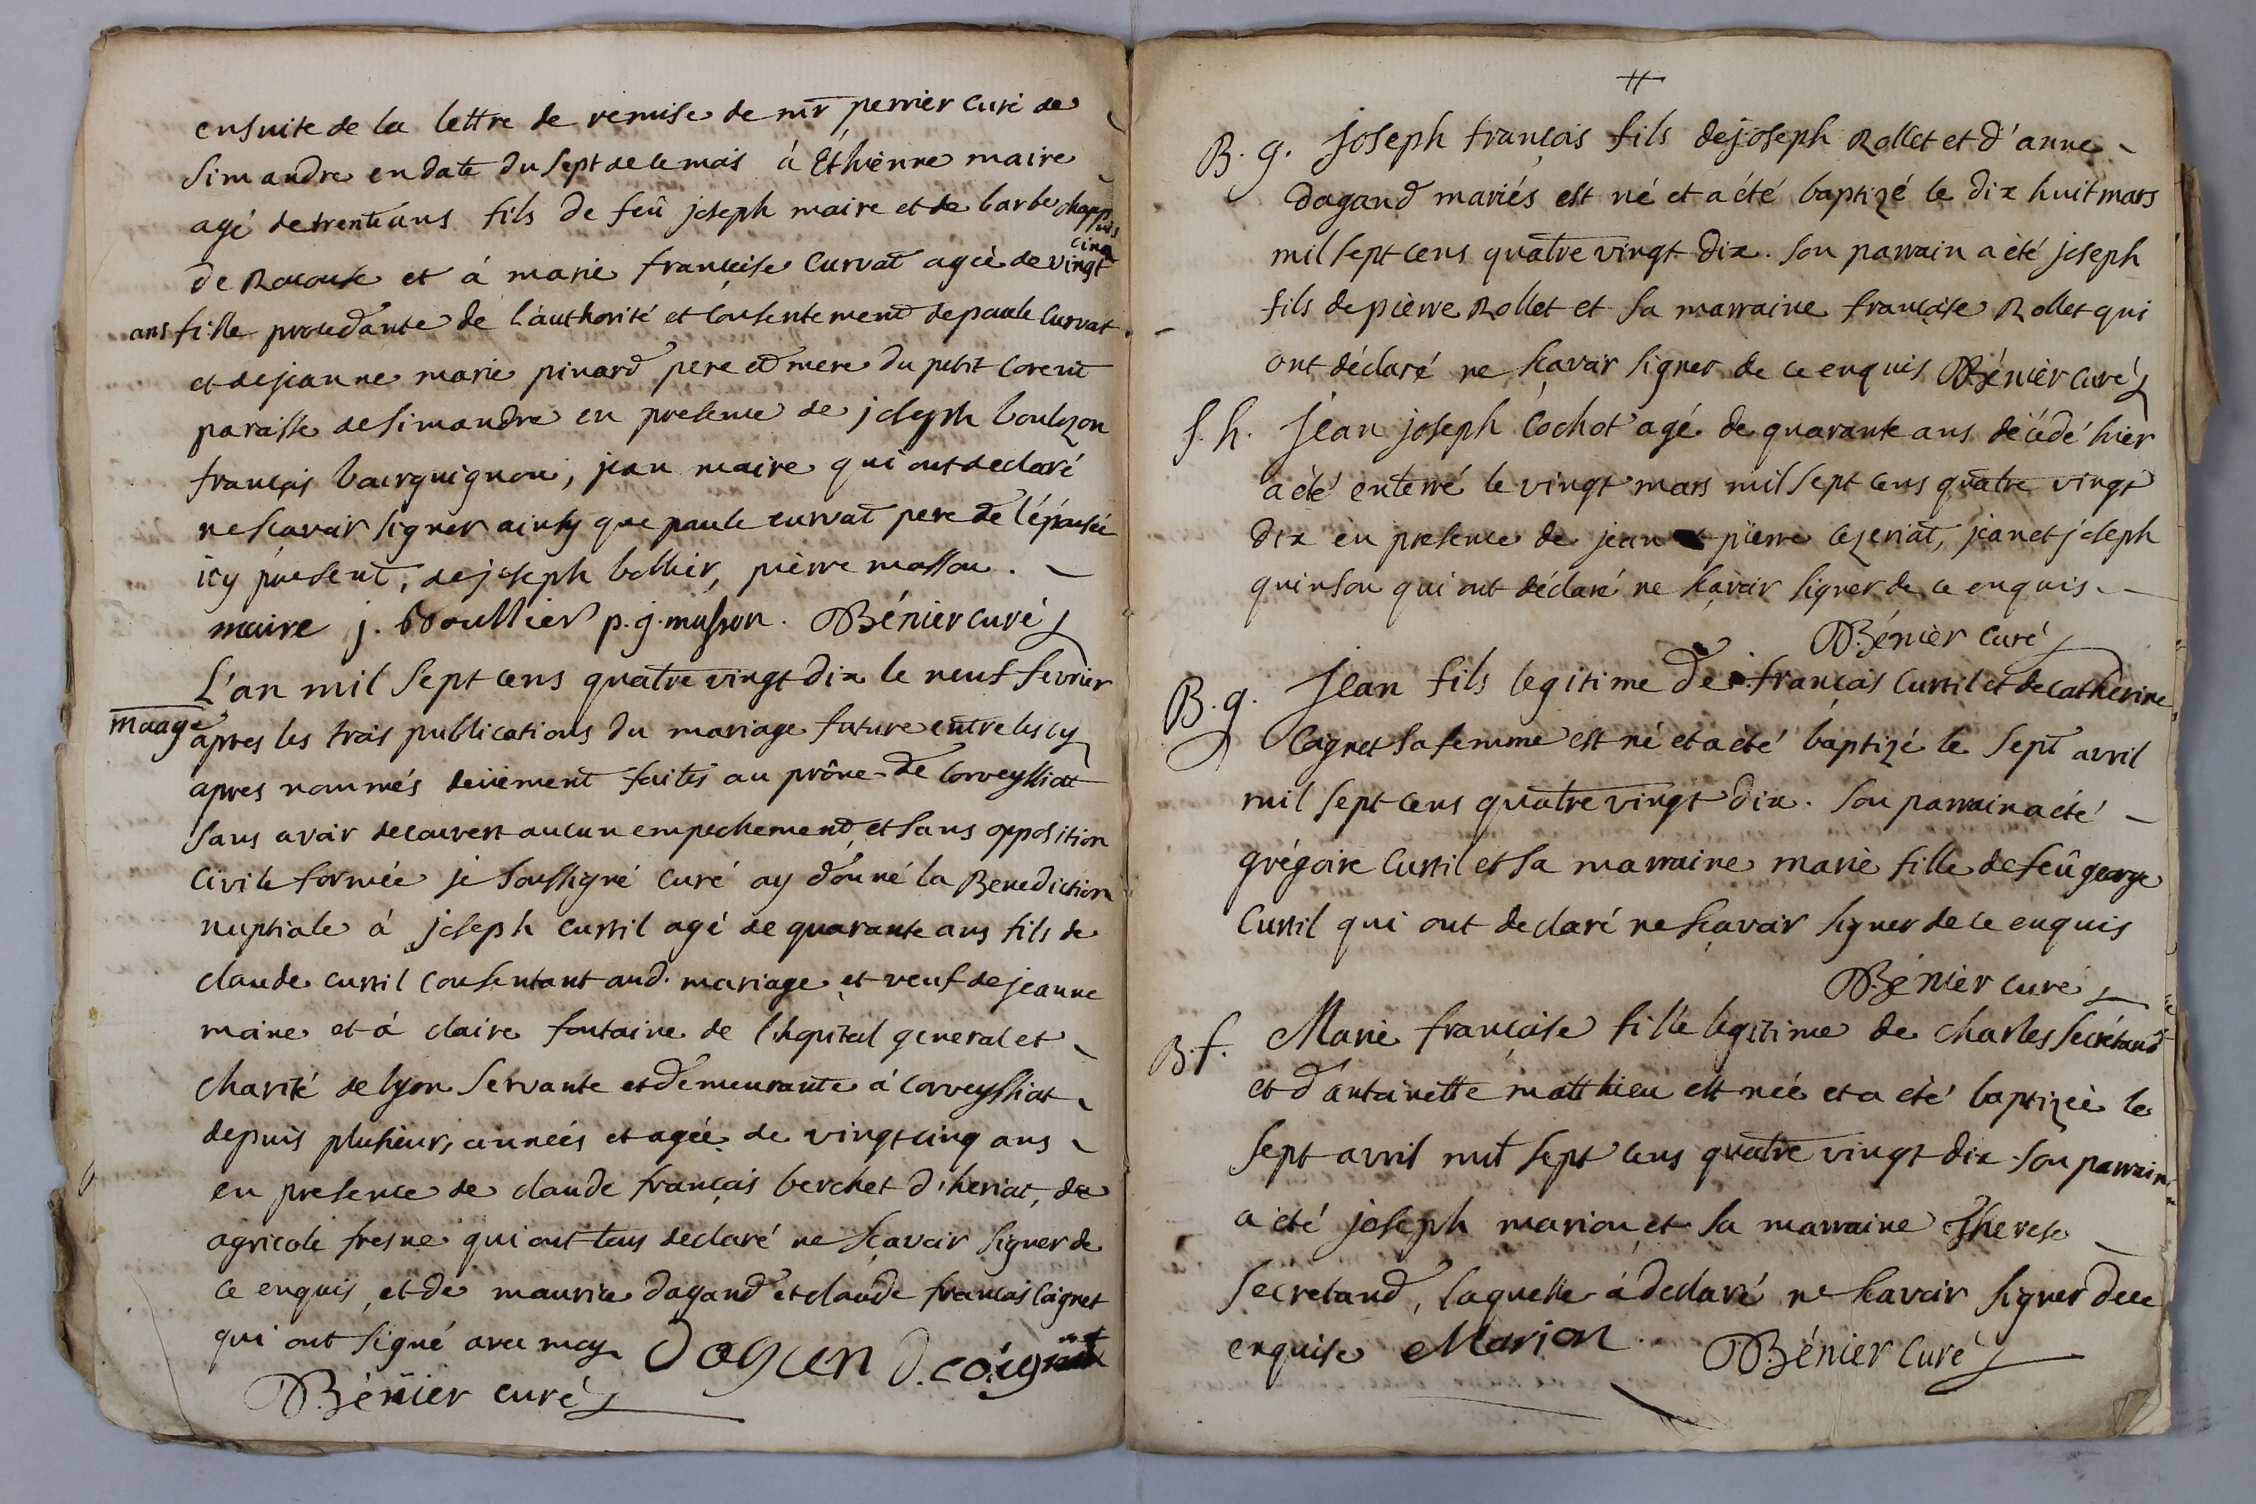 ensuite de la lettre de remise de mr perrier curé de
Simandre en date du sept de ce mois à Ethienne maire
agé de trente ans fils de feû joseph maire et de barbe chappuis
de Rououse et à marie françoise Curvat agée de vingt cinq
ans fille procedante de l'authorité et consentement de paule Curvat
et de jeanne marie pinard pere et mere du petit Corent
paroisse de Simandre en presence de joseph boulozon
françois bourguignon, jean maire qui ont declaré
ne sçavoir signer ainsy que paule curvat pere de l'épousée
icy présent, de joseph bollier, pierre masson.
maire j. Boullier p. j. musson. Bénier curé
L'an mil sept cens quatre vingt dix le neuf fevrier
maage apres les trois publications du mariage future entre les cy
apres nommés deüement faites au prône de Corveyssiat
sans avoir decouvert aucun empechement et sans opposition
civile formée je soussigné curé ay donné la Benediction
nuptiale à joseph curtil agé de quarante ans fils de
claude curtil consentant aud. mariage et veuf de jeanne
maire et à claire fontaine de l'hopital general et
charité de lyon servante et demeurante à Corveyssiat
depuis plusieurs années et agée de vingt cinq ans
en presence de claude françois berchet d'heriat, de
agricole fresne qui ont tous declaré ne sçavoir signer de
ce enquis, et de maurice dagand et claude françois Coignet
qui ont signé avec moy Dagan D. coignet
Bénier curé
B. g. Joseph françois fils de joseph Rollet et d'anne
Dagand mariés est né et a été baptizé le dix huit mars
mil sept cens quatre vingt dix. son parrain a été joseph
fils de pierre Rollet et sa marraine françoise Rollet qui
ont déclaré ne sçavoir signer de ce enquis Bénier curé
S. h. Jean joseph Cochot agé de quarante ans décédé hier
a été enterré le vingt mars mil sept cens quatre vingt
dix en presence de jean et pierre cezeriat, jean et joseph
quinson qui ont déclaré ne sçavoir signer de ce enquis.
Bénier curé
B. g. Jean fils legitime de françois Curtil et de catherine
Coignet sa femme est né et a été baptizé le sept avril
mil sept cens quatre vingt dix. son parrain a été
grégoire Curtil et sa marraine marie fille de feû george
Curtil qui ont declaré ne sçavoir signer de ce enquis
Bénier curé
B. f. Marie françoise fille legitime de charles secretand
et d'antoinette matthieu est née et a été baptizée le
sept avril mil sept cens quatre vingt dix son parrain
a été joseph marion et sa marraine Therese
secretand, laquelle à declaré ne sçavoir signer de ce
enquise Marion. Bénier curé